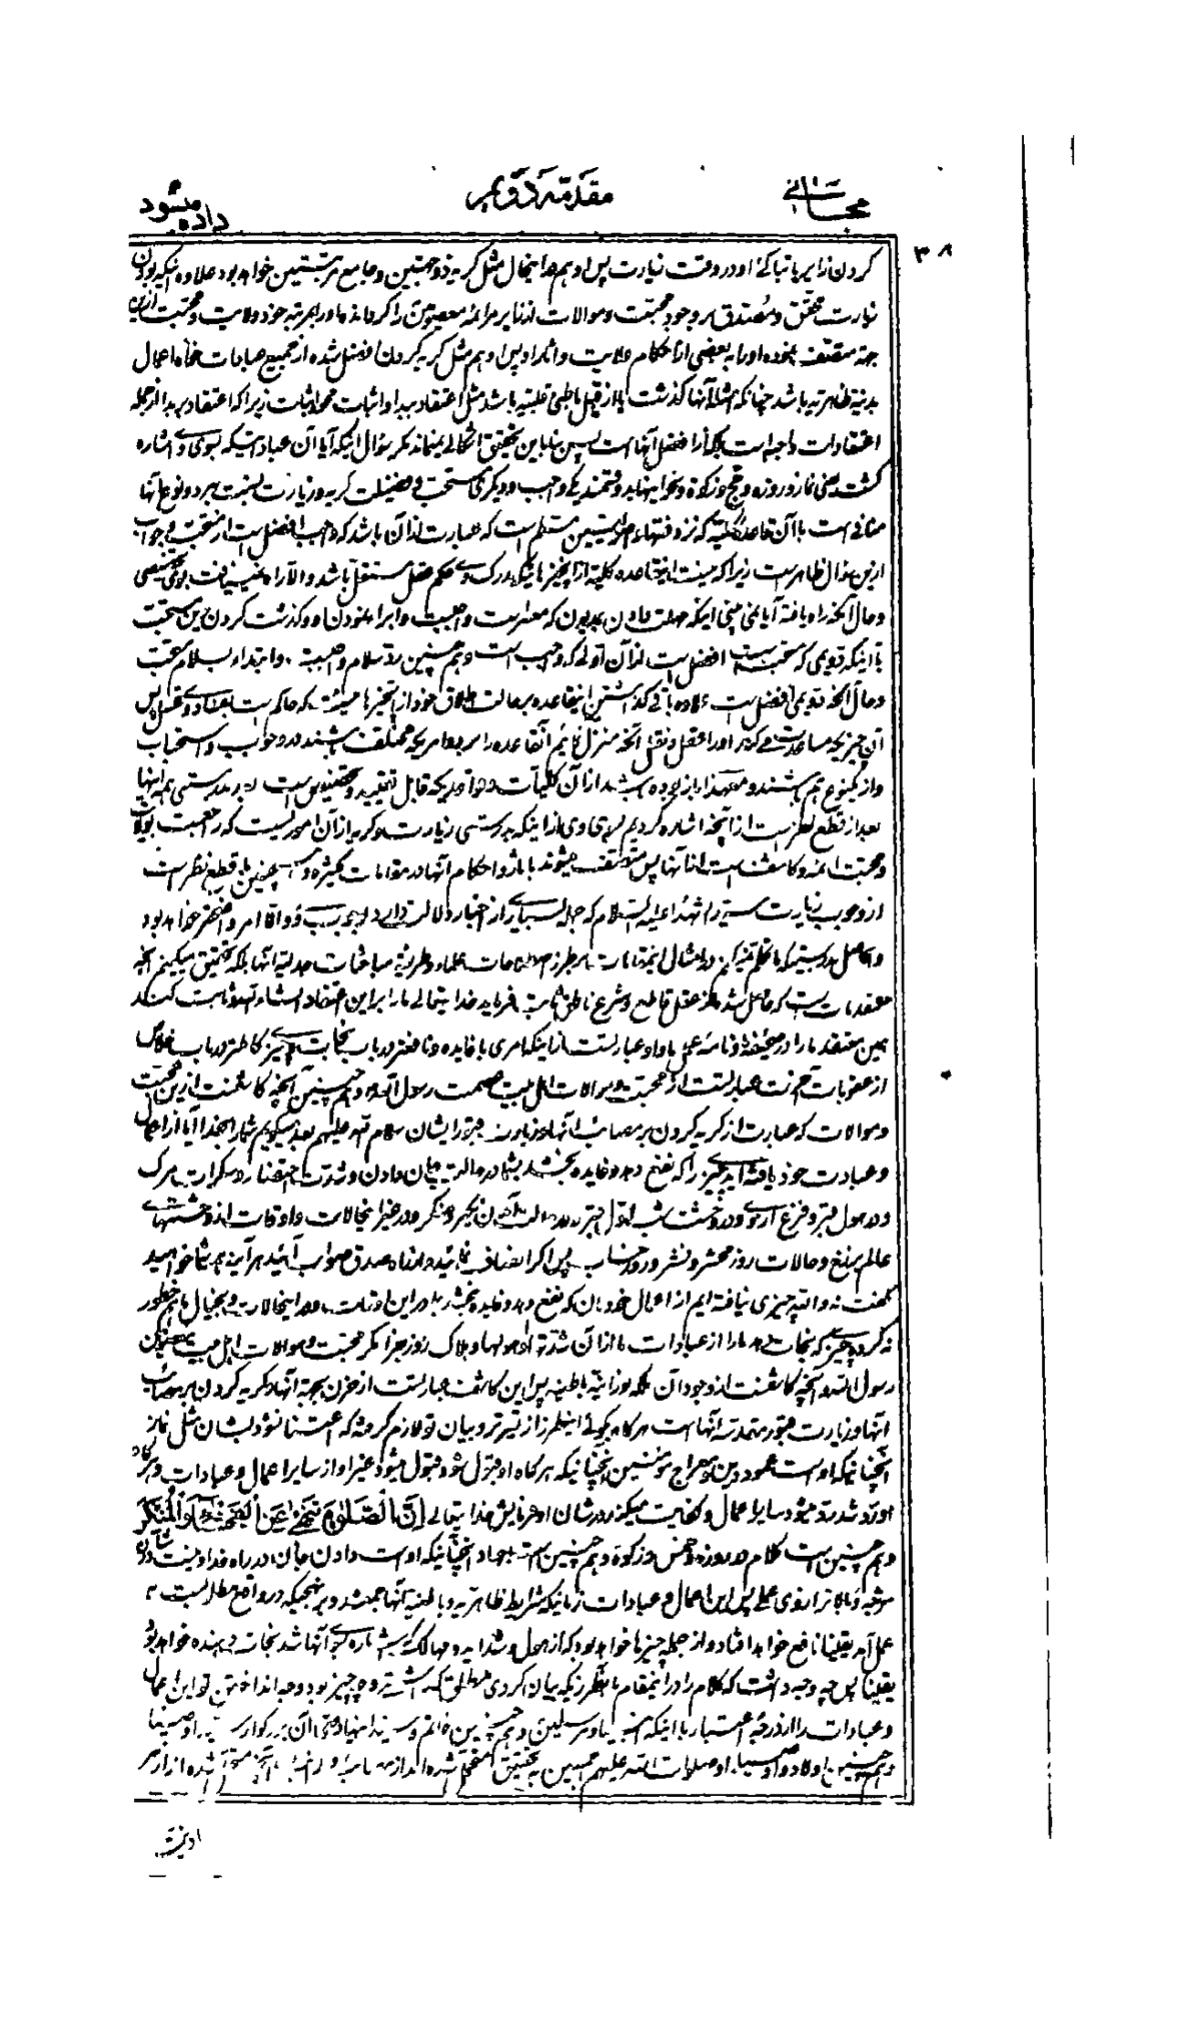 مقدمه دویم
داده میشود
۳۸
کردن زایر یا تباکی او در وقت زیارت پس او هم در اینحال مثل کریه ذو جهتین و جامع مرتبتین خواهد بود علاوه اینکه بودن
زیارت محقق و مصدق بر وجود محبت و موالات از زایر بر ائمه معصومین را
بعضی از احکام ولایت و آثار او پس او هم مثل کریه کردن افضل شده از جمیع عبادات خواه اعمال
بدنیه ظاهریه باشد چنانکه امثله آنها کذشت یا از قبیل باطنی قلبیه باشد مثل اعتقاد ببدا و اثبات محو و اثبات زیرا که اعتقاد ببدا از جمله
اعتقادات واجبه است بلکه از افضل آنها است پس بنا باین تحقیق اشکالی نمیماند مکر سؤال اینکه آیا آن عباداتیکه بسوی وی اشاره
کشت یعنی نماز و روزه و حج و زکوة و نحو اینها هر وقتیکه واجب و دیکری مستحب فضیلت کریه و زیارت نسبت بهر دو نوع آنها
منافی است با آن قاعده کلیه که نزد فقهاء و اصولیین مسلم است که عبارت از آن باشد که واجب افضل است از مستحب جواب
ازین سؤال ظاهر است زیرا که نیست اینقاعده کلیه از آنچیزهائیکه مدرک وی حکم عقل مستقل باشد والا راه نمییافت بوی تخصیصی
و حال آنکه راه یافته آیا نمی بینی اینکه مهلت دادن بمدیون که معسر است واجبست و ابراء نمودن او و کذشت کردن ازین مستحب
با اینکه دویمی که مستحب است افضل است از آن اولی که واجب است و هم چنین رد سلام واجبست و ابتداء بسلام مستحب
و حال آنکه دویمی افضل است علاوه باقی کذاشتن اینقاعده بر حالت اطلاق خود از آنچیزها نیست که حاکم است
آن چیزیکه مساعدت میکند او را عقل و نقل آنکه منزل نمائیم آنقاعده را بر دو امریکه مختلف باشند در وجوب و استحباب
و از یکنوع هم باشند و معهذا باز بوده باشد از آن کلیات و قواعدیکه قابل تقیید و تخصیص است
بعد از قطع نظر است از آنچه اشاره کردیم بسوی وی از اینکه بدرستی زیارت و کریه از آن امور نیست که راجعست بولایت
و محبت ائمه و کاشفست از آنها پس متصف میشوند با آثار و احکام آنها در مقامات کثیره و همچنین با قطع نظر است
از وجوب زیارت سید الشهداء علیه السلام که جمله بسیاری از اخبار دلالت دارد بوجوب و الا امر واضحتر خواهد بود
و حاصل بدرستیکه ما تکلم نمیکنیم در امثال اینمقامات بر طرز اصطلاحات علماء و طریقه مباحثات جدلیه آنها بلکه تحقیق میکنیم آنچه
معتقد ماست که حاصل شد از عقل قاطع و شرع ناطق ثابت فرماید خدا یتعالی ما را براین اعتقاد انشاء الله و ثابت کند
همین معتقد ما را در صحیفه و نامه عمل ما و او عبارتست از اینکه امری با فایده و نافعتر در باب نجات و چیز کاملتر در باب خلاص
از عقوبات آخرت عبارتست از محبت و موالات اهل بیت عصمت رسول الله و هم چنین آنچه کاشفست از این محبت
و موالات که عبارت از کریه کردن بر مصائب آنها و زیارت قبور ایشان سلام الله علیهم بعد میکویم شما را بخدا آیا از اعمال
و عبادت خود یافته اید چیزی را که نفع دهد و فایده بخشد بشما در حالت جان دادن و شدت احتضار و سکرات مرک
و در هول قبر و فزع او و در وحشت شب اول قبر و در حالت آمدن نکیر و منکر و در غیر اینحالات و اوقات از وحشتهای
عالم برزخ و حالات روز محشر و نشر و روز حساب پس اکر انصاف نمائید و از راه صدق و صواب آئید هر آینه شما خواهید
کفت نه والله چیزی نیافته ایم از اعمال خودمان که نفع دهد و فایده بخشد بما در این اوقات و در اینحالات و بخیال ما هم خطور
نه کرده چیزی که نجات دهد ما را از عبادات ما از آن شدتها و هولها و هلاک روز جزا مکر محبت و موالات اهل بیت معصومین
رسول الله و آنچه کاشفست از وجود آن ملکه نورانیه باطنیه پس این کاشف عبارتست از حزن بجهة آنها و کریه کردن بر مصائب
آنها و زیارت قبور مقدسه آنها است هر کاه بکوئی اینطرز از تقریر و بیان تو لازم کرفته که اعتنا نشود بشان مثل نماز
آنچنانیکه او است عمود دین و معراج مؤمنین آنچنانیکه هر کاه او قبول شود قبول میشود غیر او از سایر اعمال و عبادات و هر کاه
او رد شد رد میشود سایر اعمال و کفایت میکند در شان او فرمایش خدا یتعالی إِنَّ الصَّلوٰةَ تَنْهٰى عَنِ الْفَحْشَاءِ وَالْمُنْكَرِ
و هم چنین است کلام در روزه و خمس و زکوة و هم چنین است جهاد آنچنانیکه او است دادن جان در راه خدا و نیست
مرتبه و بالاتر از وی عملی پس این اعمال و عبادات زمانیکه شرایط ظاهریه و باطنیه آنها جمع شد و بر نهجیکه در واقع مطلوبست
عمل آمد یقینا نافع خواهد افتاد و از جمله چیزها خواهد بود که از هول و شداید و مهالک که اشاره بسوی آنها شد نجات دهنده خواهد بود
یقینا پس چه وجه داشت که کلام را در اینمقام باین طرزیکه بیان کردی مطلق کذاشته و چه چیز بود وجه انداختن تو این اعمال
و عبادات را از درجه اعتبار با اینکه انبیاء و مرسلین و هم چنین خاتم و سید اینها و آن بزرکوار سید اوصیا
و هم چنین اولاد و اوصیاء او صلوات الله علیهم اجمعین
اذیت